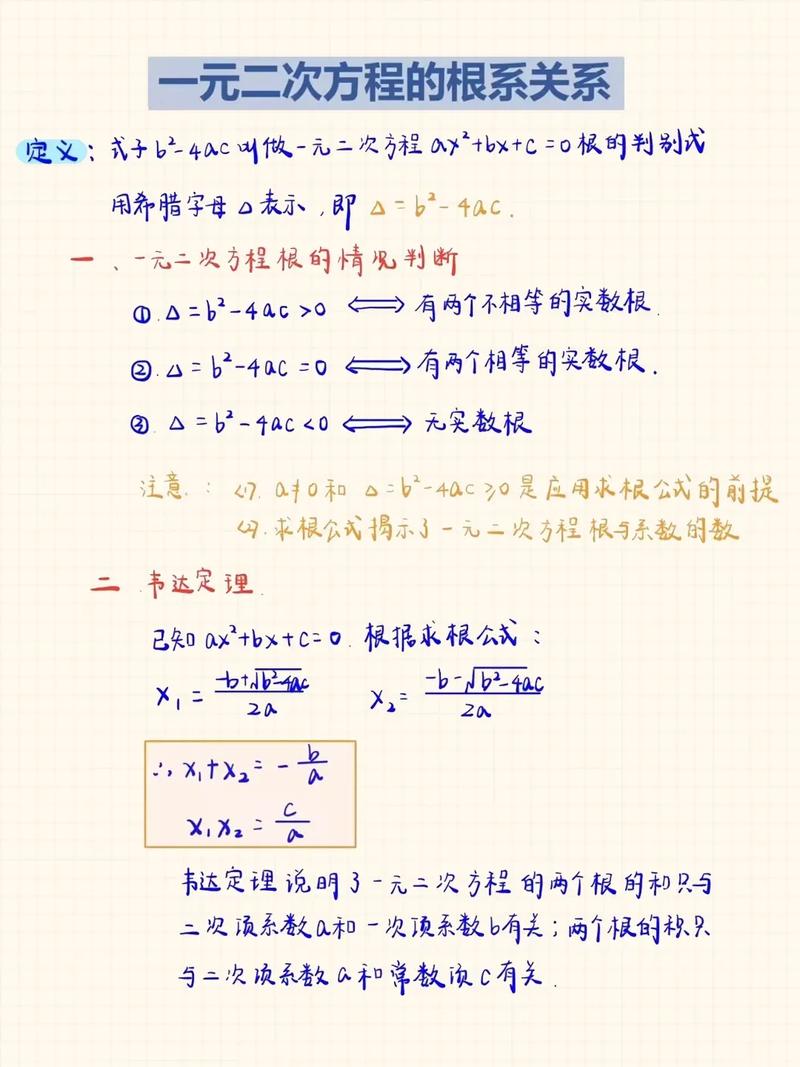 一元二次方程的根系关系
定义：式子b²-4ac叫做一元二次方程ax²+bx+c=0根的判别式
用希腊字母△表示，即 △=b²-4ac.
一、一元二次方程根的情况判断
①.△=b²-4ac>0 ⟺ 有两个不相等的实数根.
②.△=b²-4ac=0 ⟺ 有两个相等的实数根.
③.△=b²-4ac<0 ⟺ 无实数根
注意：(1).a≠0和 △=b²-4ac≥0是应用求根公式的前提
(2).求根公式揭示了一元二次方程根与系数的数
二.韦达定理.
已知ax²+bx+c=0.根据求根公式：
x₁=(-b+√(b²-4ac))/2a x₂=(-b-√(b²-4ac))/2a
∴x₁+x₂=-b/a
x₁x₂=c/a
韦达定理说明了一元二次方程的两个根的和只与
二次项系数a和一次项系数b有关；两个根的积只
与二次项系数a和常数项c有关.